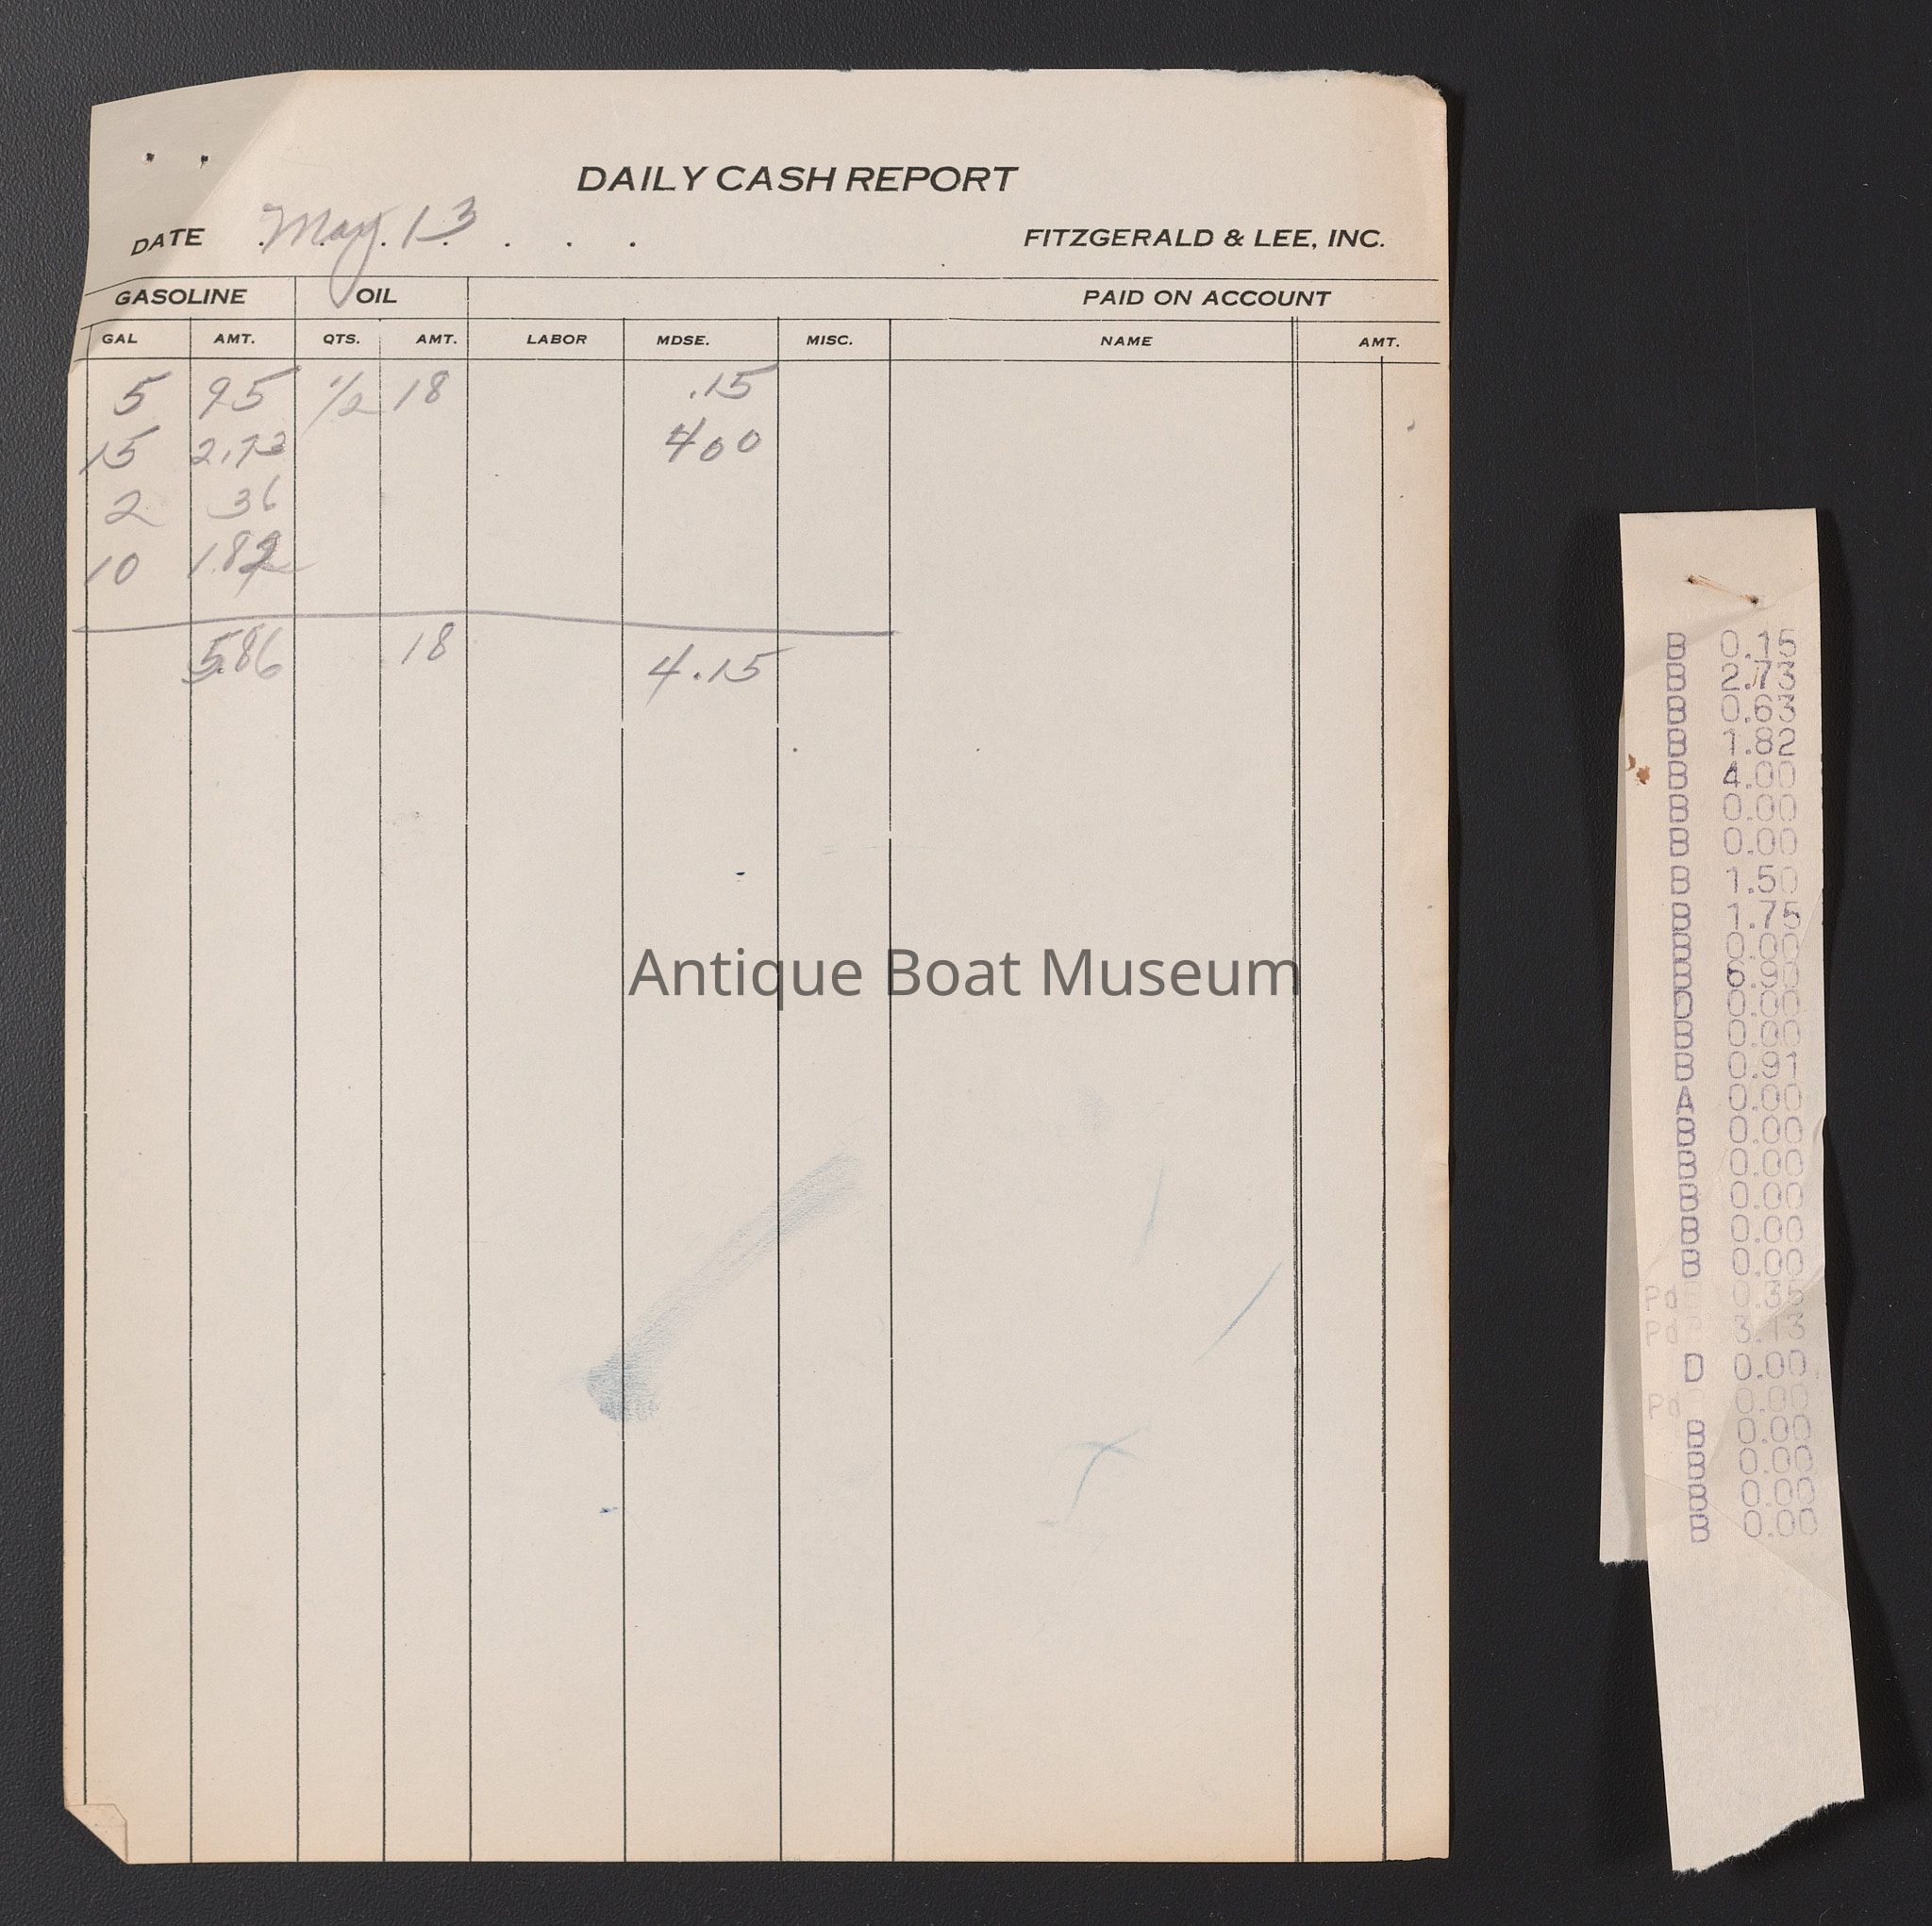 DAILY CASH REPORT
DATE May 13
FITZGERALD & LEE, INC.
GASOLINE OIL PAID ON ACCOUNT
GAL AMT. QTS. AMT. LABOR MDSE. MISC. NAME AMT.
5 95 1/2 18 .15
15 2.73 400
2 36
10 1.82
5.86 18 4.15
Antique Boat Museum
B 0.15
B 2.73
B 0.63
B 1.82
B 4.00
B 0.00
B 0.00
B 1.50
B 1.75
B 0.00
B 6.90
D 0.00
B 0.00
B 0.91
A 0.00
B 0.00
B 0.00
B 0.00
B 0.00
B 0.00
Pd 0.35
Pd 3.13
D 0.00
Pd 0.00
B 0.00
B 0.00
B 0.00
B 0.00